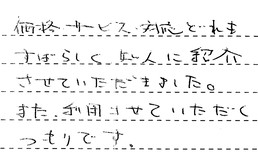 価格・サービス・対応どれも
すばらしく 知人に紹介
させていただきました。
また、利用させていただく
つもりです。